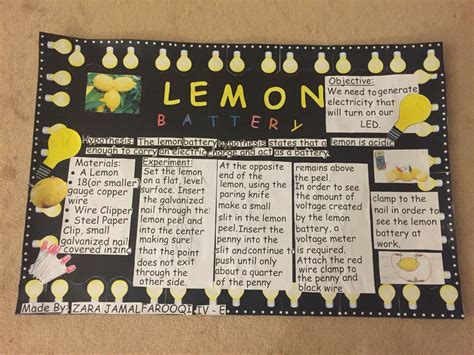 LEMON
BATTERY
Objective:
We need to generate
electricity that
will turn on our
LED.
Hypothesis: The lemon battery hypothesis states that a lemon is acidic
enough to carry an electric charge and act as a battery.
Materials:
• A Lemon
• 18(or smaller
gauge copper
wire
• Wire Clipper
• Steel Paper
Clip, small
galvanized nail
covered in zinc
Experiment:
Set the lemon
on a flat, level
surface. Insert
the galvanized
nail through the
lemon peel and
into the center
making sure
that the point
does not exit
through the
other side.
At the opposite
end of the
lemon, using the
paring knife
make a small
slit in the lemon
peel.Insert the
penny into the
slit and continue to
push until only
about a quarter
of the penny
remains above
the peel.
In order to see
the amount of
voltage created
by the lemon
battery, a
voltage meter
is required.
Attach the red
wire clamp to
the penny and
black wire
clamp to the
nail in order to
see the lemon
battery at
work.
Made By: ZARA JAMAL FAROOQI IV - E